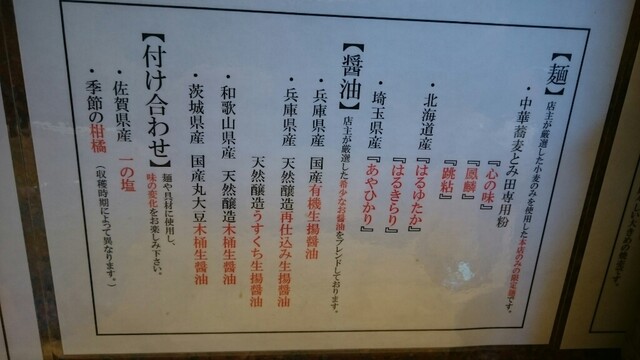 【麺】店主が厳選した小麦のみを使用した本店のみの限定麺です。
・中華蕎麦とみ田専用粉『心の味』
『鳳麟』
『跳粘』
・北海道産『はるゆたか』
『はるきらり』
・埼玉県産『あやひかり』
【醤油】店主が厳選した希少なお醤油をブレンドしております。
・兵庫県産 国産有機生揚醤油
・兵庫県産 天然醸造再仕込み生揚醤油
天然醸造うすくち生揚醤油
・和歌山県産 天然醸造木桶生醤油
・茨城県産 国産丸大豆木桶生醤油
【付け合わせ】麺や具材に使用し、
味の変化をお楽しみ下さい。
・佐賀県産 一の塩
・季節の柑橘（収穫時期によって異なります。）